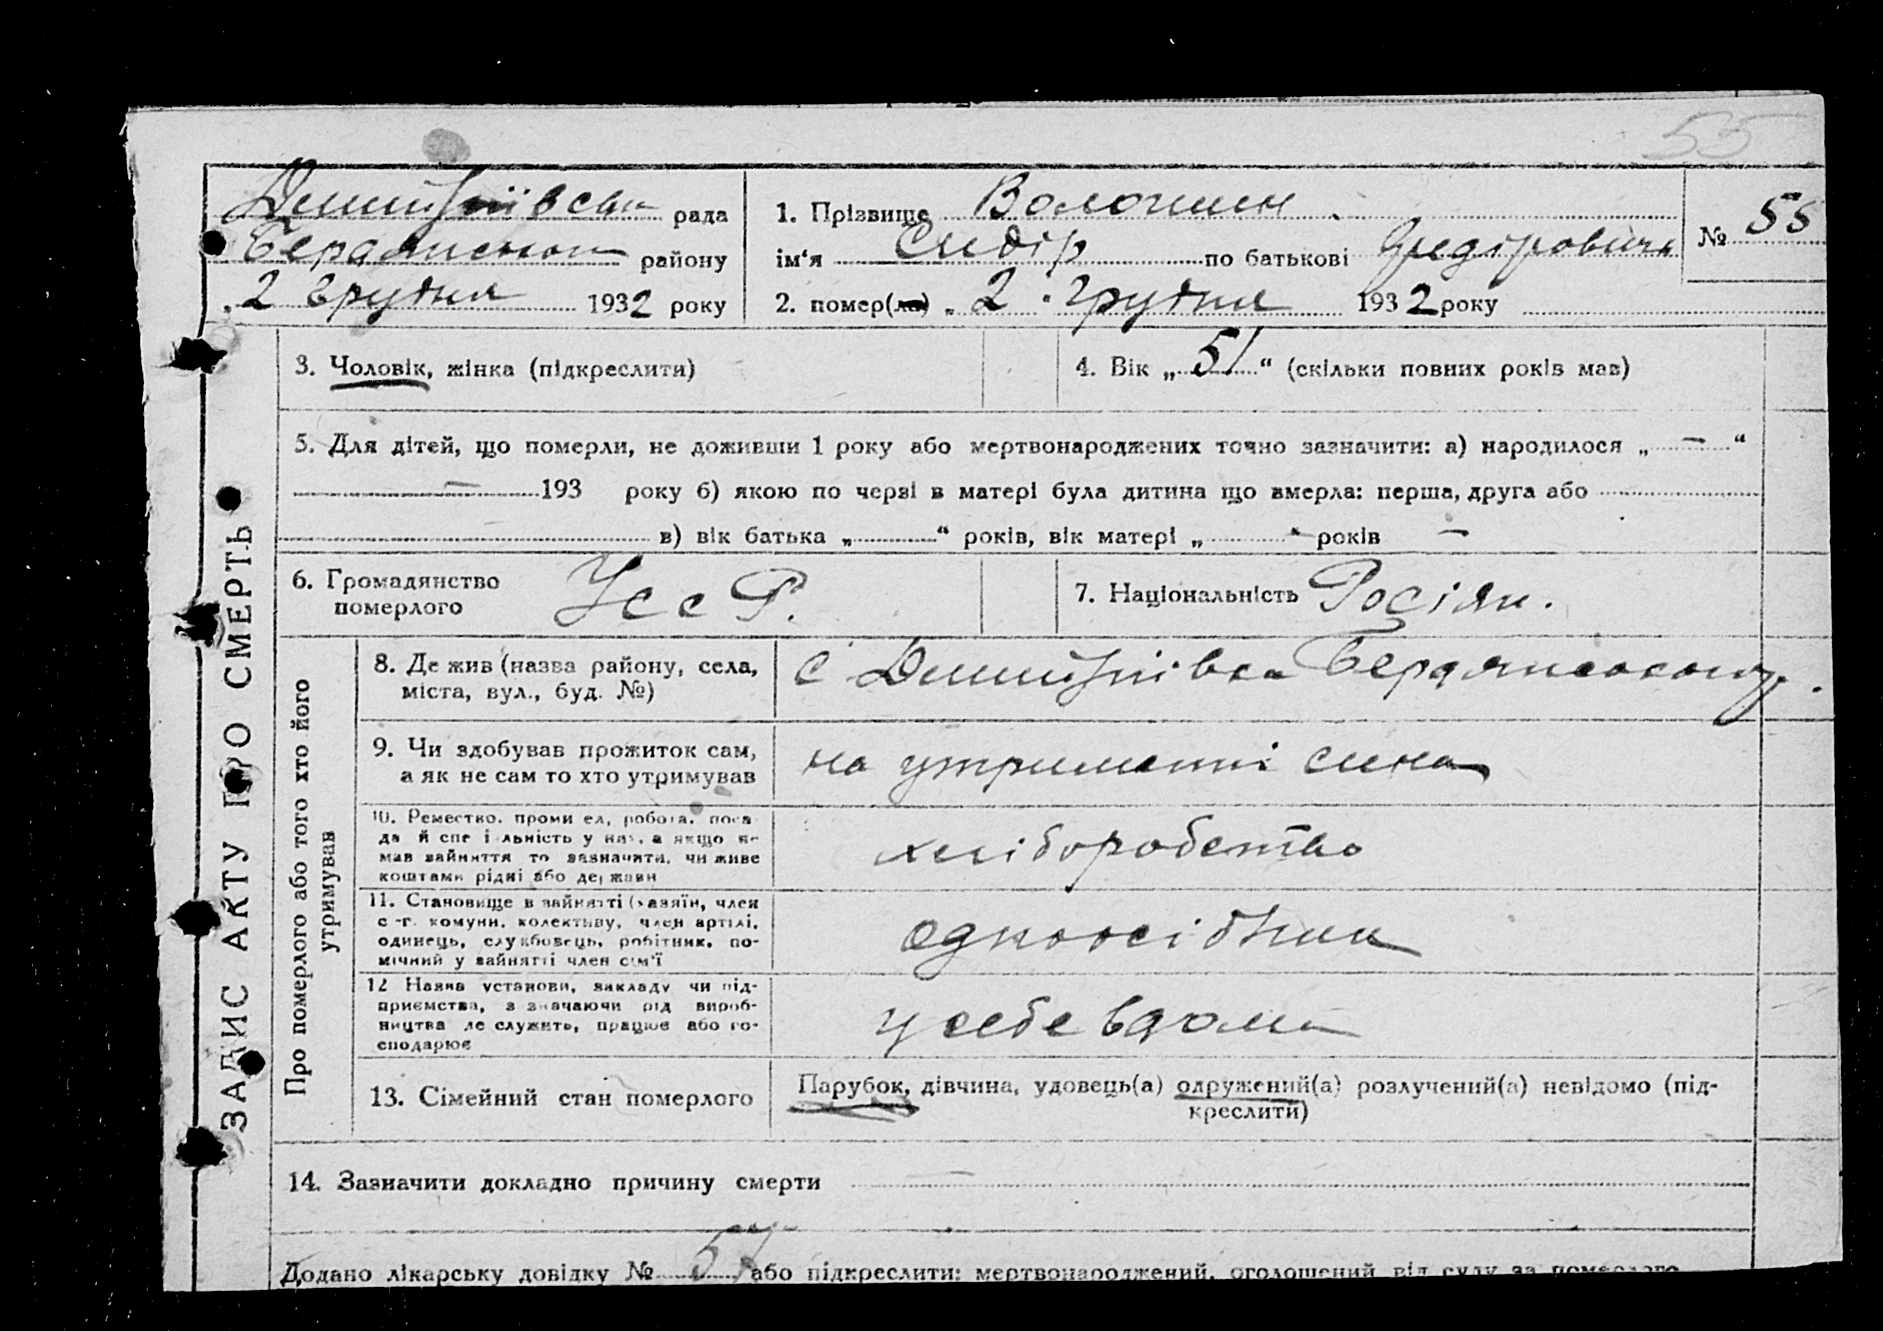 55
Дмитрівська рада
Бердянськ району
2 грудня 1932 року
1. Прізвище Волошин
ім‘я Сидір по батькові
2. помер(ла) „ 2 “ грудня 1932 року
№ 55
3. Чоловік, жінка (підкреслити)
4. Вік „ 51 “ (скільки повних років мав)
5. Для дітей, що померли, не доживши 1 року або мертвонароджених точно зазначити: а) народилося „ — “
— 193 року б) якою по черзі в матері була дитина що вмерла: перша, друга або
в) вік батька „ “ років, вік матері „ “ років —
6. Громадянство
померлого
УССР.
7. Національність Росіян.
ЗАПИС АКТУ ПРО СМЕРТЬ
Про померлого або того хто його
утримував
8. Де жив (назва району, села,
міста, вул., буд. №)
с Дмитрівка Бердянського
9. Чи здобував прожиток сам,
а як не сам то хто утримував
на утриманні сина
10. Ремество, проми ел, робота, поса
да й спе і льність у них, а якщо не
мав зайняття то зазначити, чи живе
коштами рідні або держави
хліборобство
11. Становище в зайнятті (хазяїн, член
с -г. комуни, колективу, член артілі,
одинець, службовець, робітник, по-
мічний у зайнятті член сім‘ї
одноосібник
12 Назва установи, закладу чи під-
приємства, з значаючи рід вироб-
ництва де служить, працює або го-
сподарює
у себе вдома
13. Сімейний стан померлого
Парубок, дівчина, удовець(а) одружений(а) розлучений(а) невідомо (під-
креслити)
14. Зазначити докладно причину смерти —
Додано лікарську довідку № 57 або підкреслити: мертвонароджений, оголошений від суду за померлого